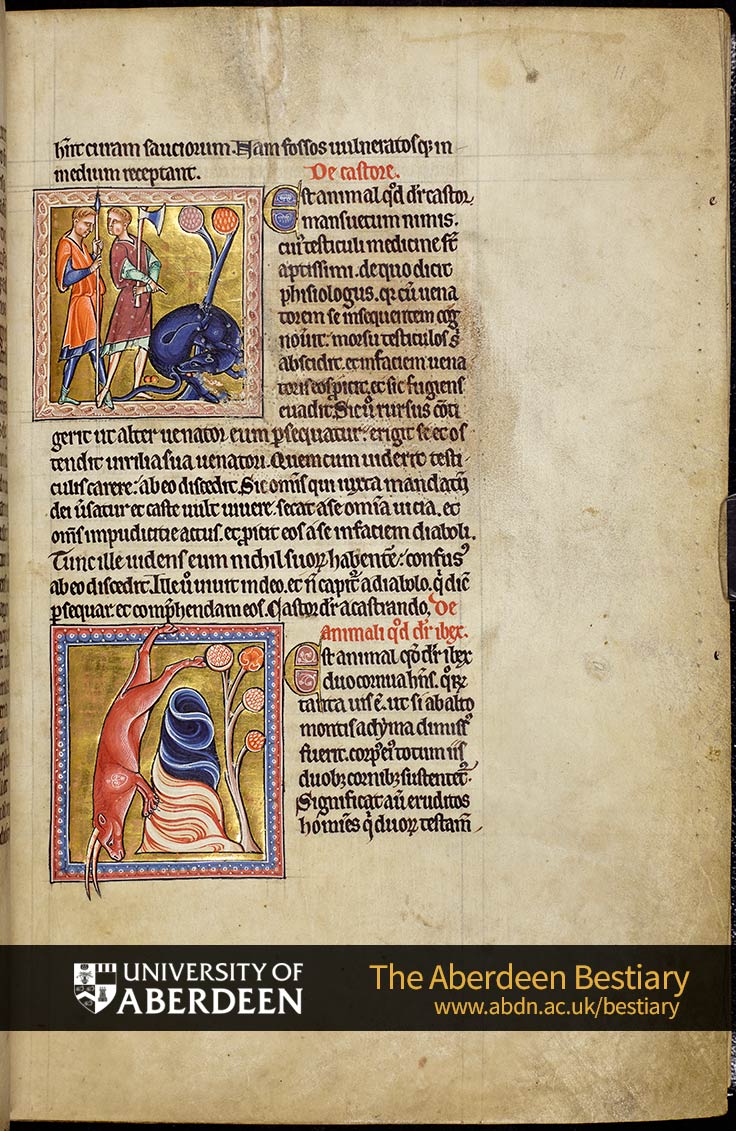 hn̄t curam sauciorum. Nam fossos uulneratosq; in
medium receptant. De castore.
Est animal qd̄ dr̄ castor,
mansuetum nimis.
cui' testiculi medicine st̄
aptissimi. de quo dicit
phisiologus. qr cū uena
torem se insequentem cog
nouit. morsu testiculos s'
abscidit. et in faciem uena
toris eos p̄icit. et sic fugiens
euadit. Sic ū rursus cōti
gerit ut alter uenator eum ꝑsequatur. erigit se et os
tendit uirilia sua uenatori. Quem cum uiderit testi
culis carere. ab eo discedit. Sic omīs qui iuxta mandatū
dei ūsatur et caste uult uiuere. secat a se omīa uicia. et
om̄s impudicitie actus. et p̄icit eos a se in faciem diaboli.
Tunc ille uidens eum nichil suoꝝ habentē. confus'
ab eo discedit. Ille ū uiuit in deo. et n̄ capit̄ a diabolo. q̄ dic̄
ꝑsequar et comp̄hendam eos. Castor dr̄ a castrando. De
animali qd̄ dr̄ ibex.
Est animal qd̄ dr̄ ibex
duo cornua hn̄s. qoꝝ
tanta uis ē. ut si ab alto
montis ad yma dimiss'
fuerit. corp' ei' totum iis
duob; cornib; sustentet̄.
Significat aū eruditos
homines q̄ duoꝝ testam̄
11
e
UNIVERSITY OF
ABERDEEN
The Aberdeen Bestiary
www.abdn.ac.uk/bestiary